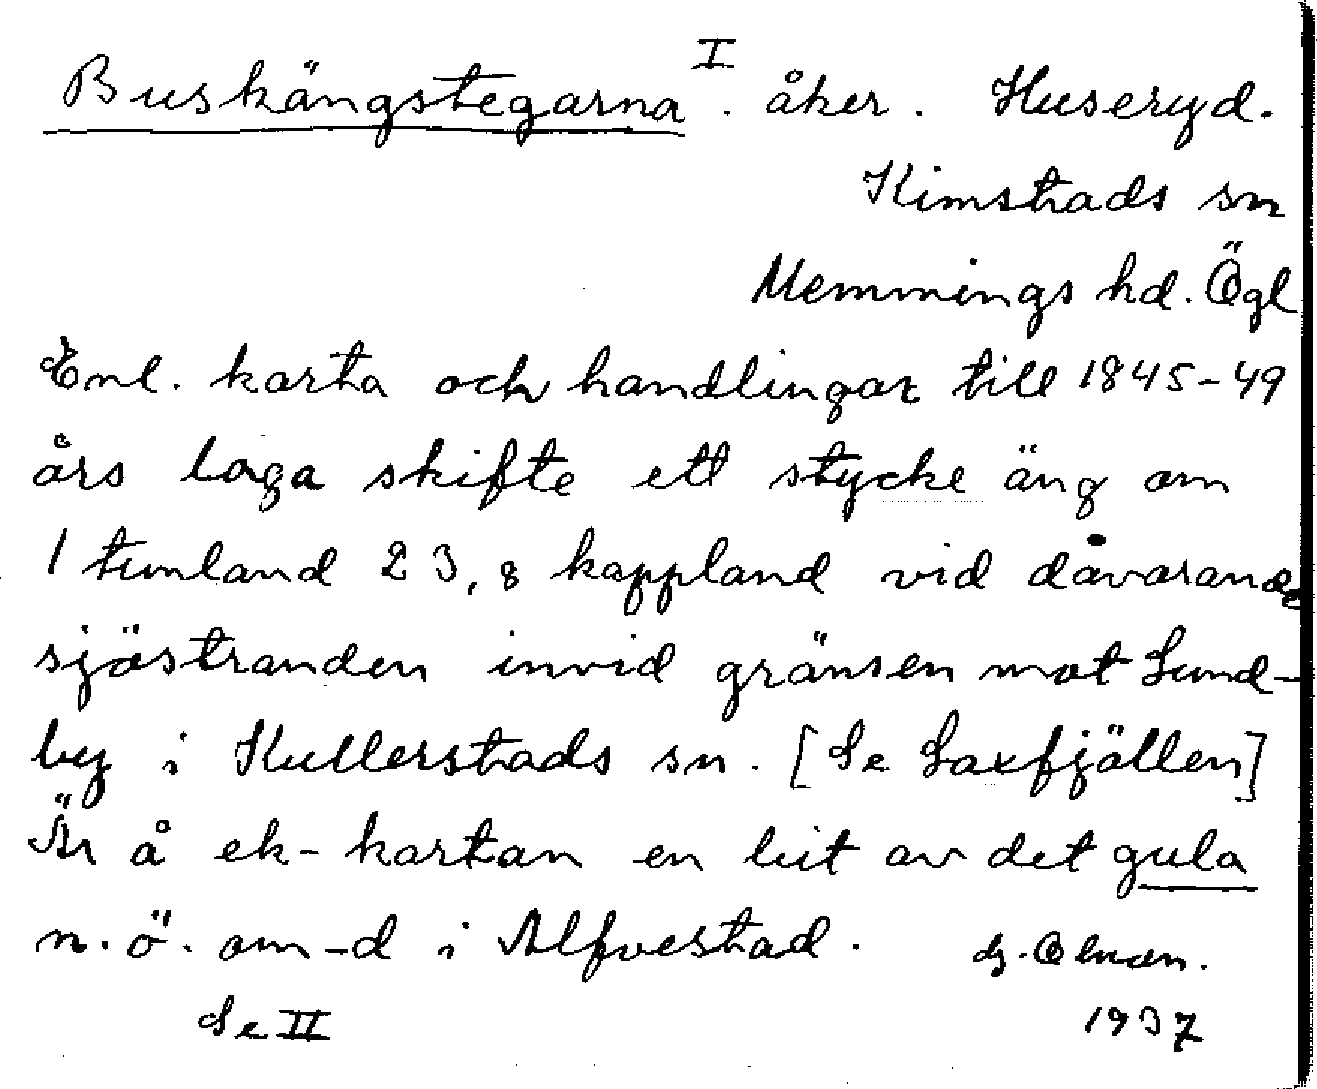 Buskängstegarna I. åker. Huseryd.
Kimstads sn
Memmings hd. Ögl
Enl. karta och handlingar till 1845-49
års laga skifte ett stycke äng om
1 tunland 23,8 kappland vid dåvarande
sjöstranden invid gränsen mot Sund-
by i Kullerstads sn. [Se Laxfjällen]
Är å ek-kartan en bit av det gula
n.ö. om -d i Alfvestad. G.
Se II 1937